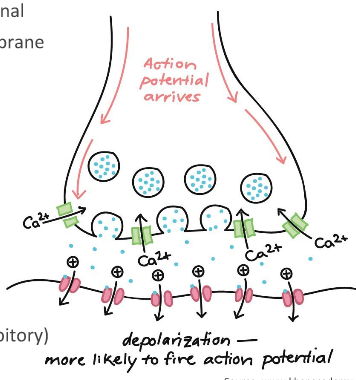 nal
brane
Action
potential
arrives
Ca2+
Ca2+
Ca2+
Ca2+
⊕ ⊕ ⊕ ⊕ ⊕ ⊕
pitory)
depolarization —
more likely to fire action potential